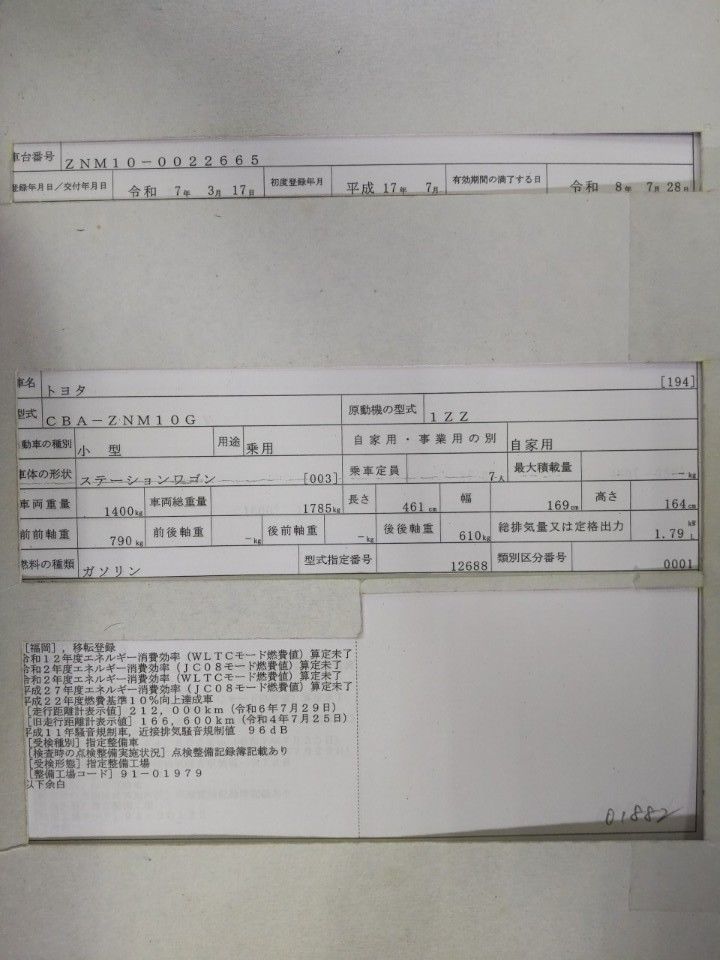 車台番号 ZNM10-0022665
登録年月日/交付年月日 令和 7年 3月 17日 初度登録年月 平成 17年 7月 有効期間の満了する日 令和 8年 7月 28日
車名 トヨタ [194]
型式 CBA-ZNM10G 原動機の型式 1ZZ
動車の種別 小 型 用途 乗用 自家用・事業用の別 自家用
車体の形状 ステーションワゴン [003] 乗車定員 7人 最大積載量 -kg
車両重量 1400kg 車両総重量 1785kg 長さ 461cm 幅 169cm 高さ 164cm
前前軸重 790kg 前後軸重 -kg 後前軸重 -kg 後後軸重 610kg 総排気量又は定格出力 1.79 kW L
燃料の種類 ガソリン 型式指定番号 12688 類別区分番号 0001
[福岡],移転登録
令和12年度エネルギー消費効率(WLTCモード燃費値)算定未了
令和2年度エネルギー消費効率(JC08モード燃費値)算定未了
令和2年度エネルギー消費効率(WLTCモード燃費値)算定未了
平成27年度エネルギー消費効率(JC08モード燃費値)算定未了
平成22年度燃費基準10%向上達成車
[走行距離計表示値]212,000km(令和6年7月29日)
[旧走行距離計表示値]166,600km(令和4年7月25日)
平成11年騒音規制車,近接排気騒音規制値 96dB
[受検種別]指定整備車
[検査時の点検整備実施状況]点検整備記録簿記載あり
[受検形態]指定整備工場
[整備工場コード]91-01979
以下余白
01882